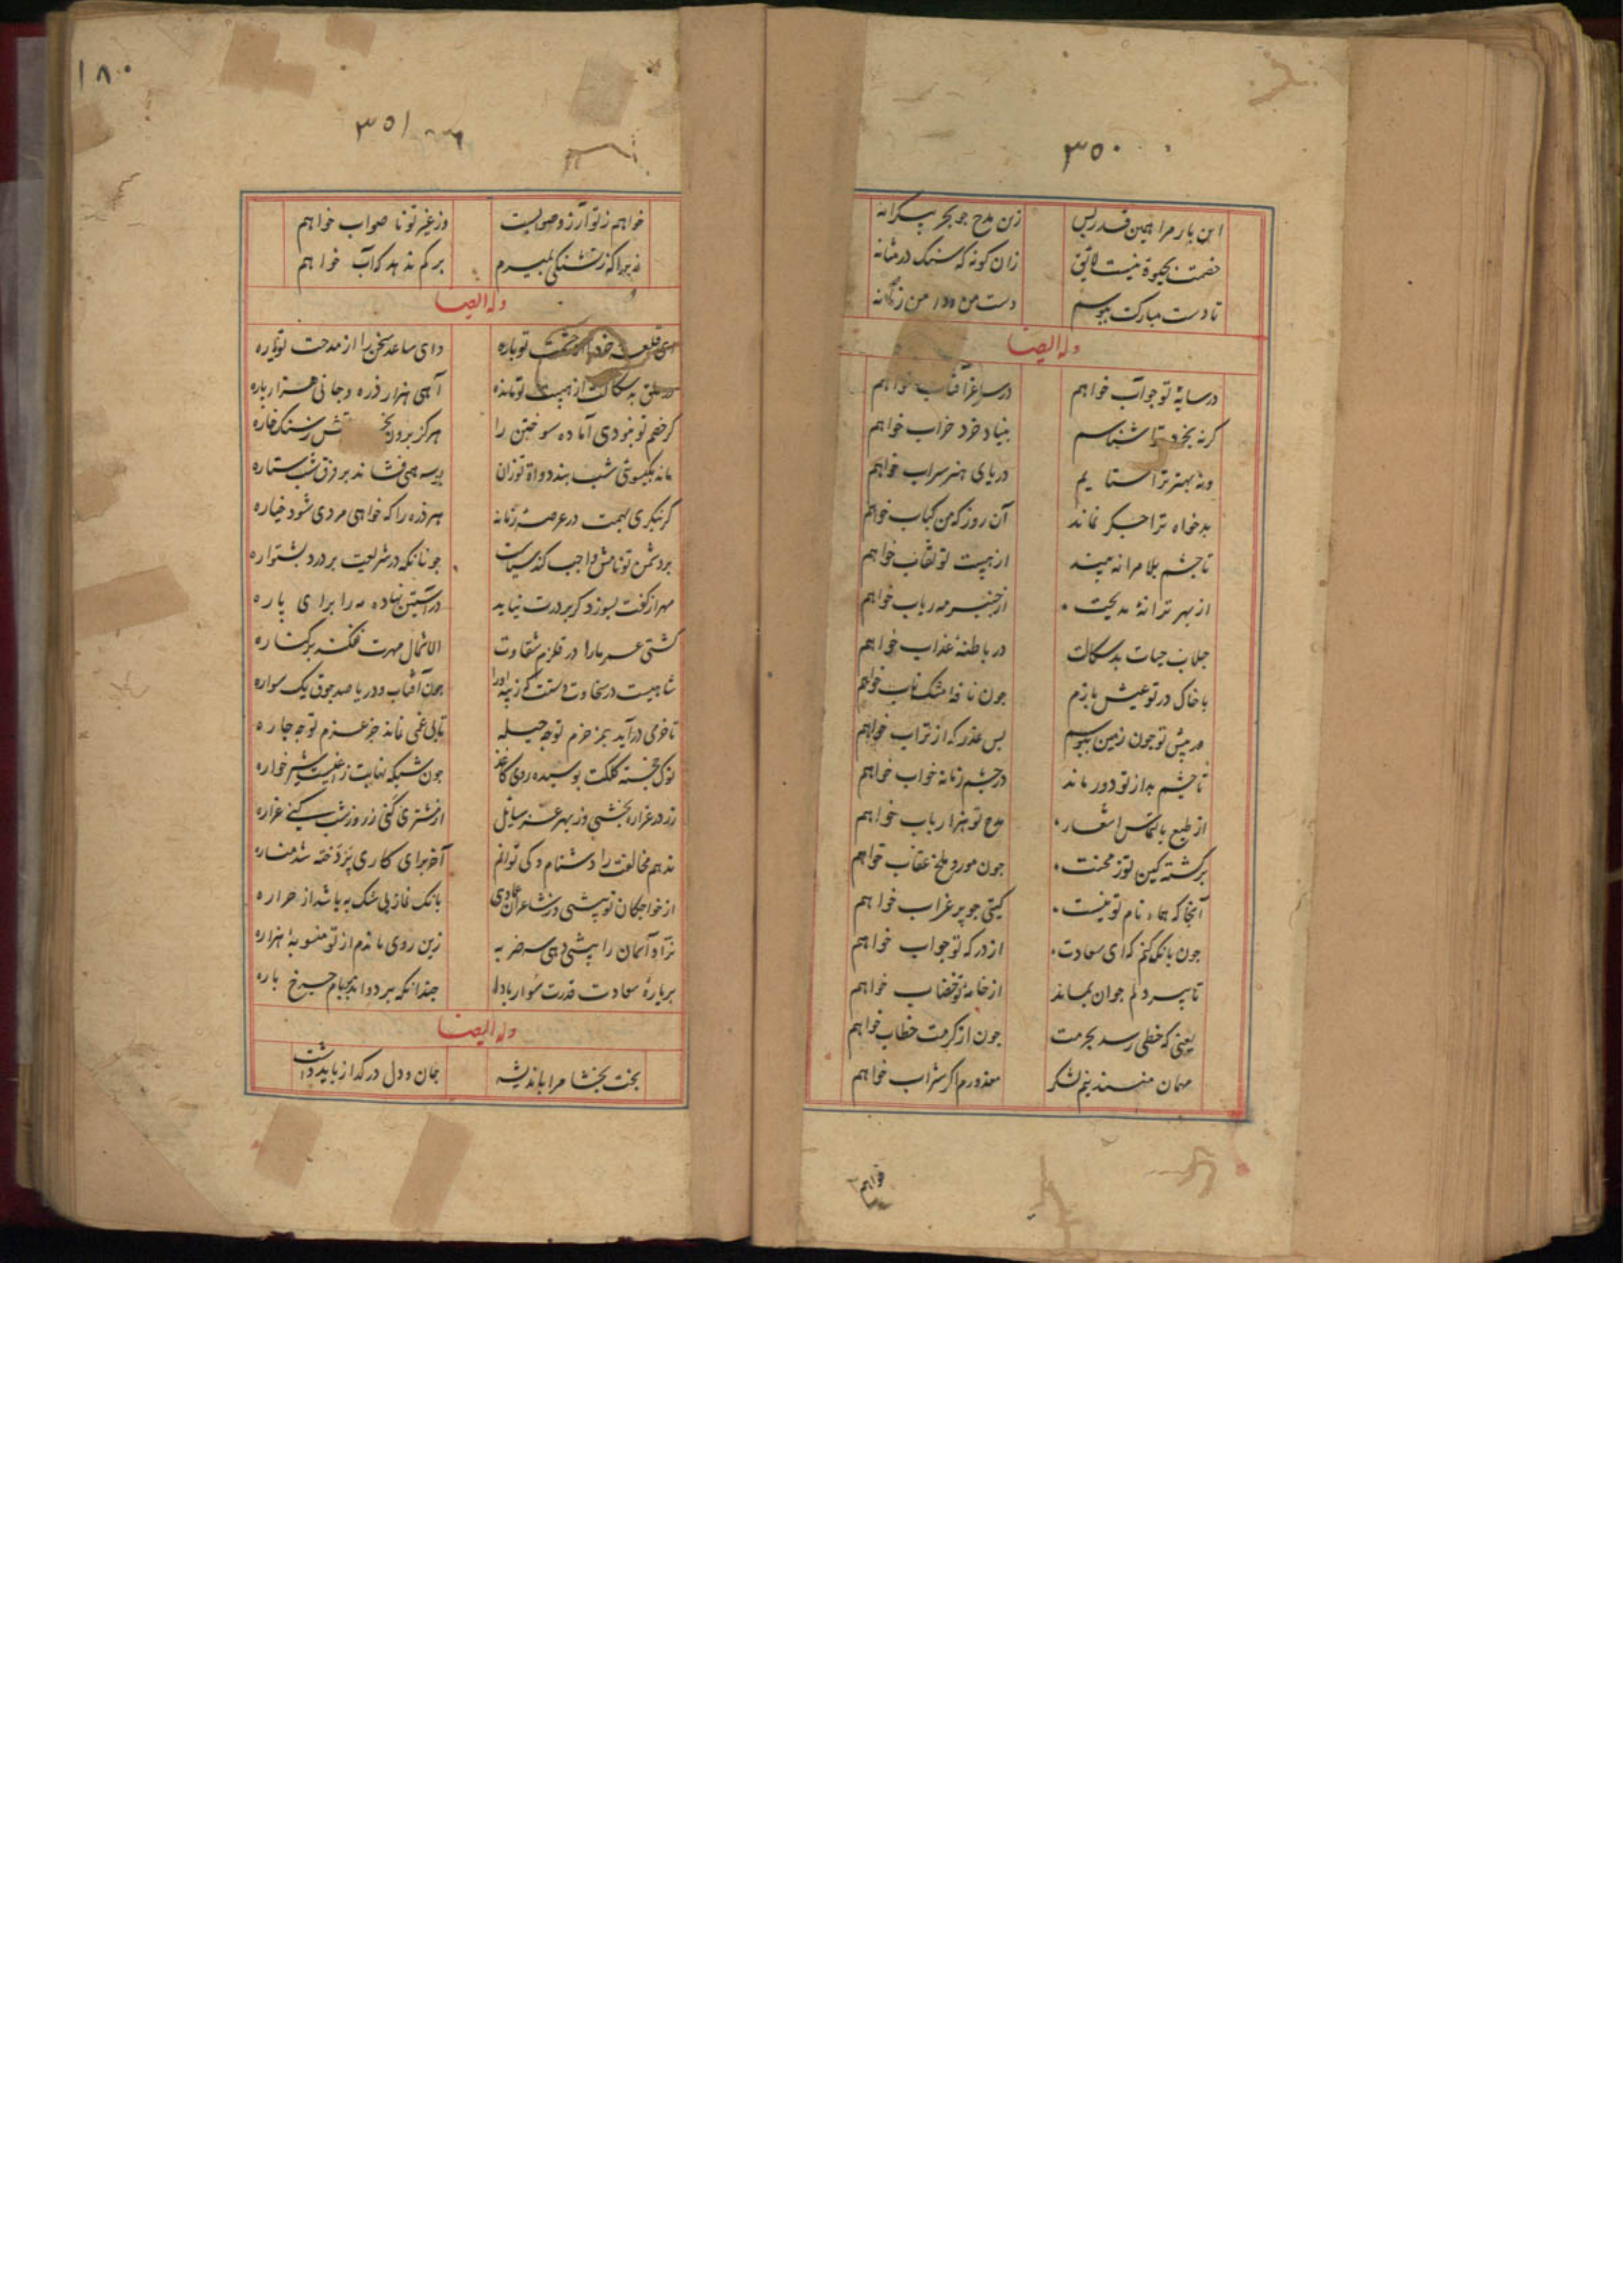 ۳۵۰
این بار مرا همین قدر بس زین مدح چو بحر بیکرانه
خصمت بحیوة نیست لایق زان کونه که سنک در مثانه
تا دست مبارکت ببوسم دست من و
وله ایضا
در سایهٔ تو جو آب خواهم در ساغر آفتاب خواهم
کر نه بخرد ترا شناسم بنیاد خرد خراب خواهم
ور نه بهنر ترا ستایم دریای هنر سراب خواهم
بدخواه ترا جکر نماند آن روز که من کباب خواهم
تا چشم بلا مرا نه بیند از هیبت تو نقاب خواهم
از بهر ترانهٔ مدیحت از چنبر مه رباب خواهم
جلاب حیات بدسکالت در باطنهٔ عذاب خواهم
با خاک در تو عیش بازم جون نافهٔ مشک ناب خواهم
در پیش تو جون زمین ببوسم بس عذر که از تراب خواهم
تا چشم بد از تو دور ماند در چشم زمانه خواب خواهم
از طبع بالتماس اشعار مدح تو هزار باب خواهم
برکشته کین تو ز محنت جون مور و ملخ عقاب خواهم
آنجا که هماء نام تو نیست کیتی جو پر غراب خواهم
جون بانک کنم که ای سعادت از درکه تو جواب خواهم
تا پیر دلم جوان بماند از خامهٔ تو خضاب خواهم
یعنی که خطی رسد بحرمت جون از کرمت خطاب خواهم
مهمان معذورم اکر شراب خواهم
خواهم
۱۸۰
۳۵۱
خواهم ز تو آرزو صوابست وز غیر تو ناصواب خواهم
نه چراکه ز تشنکی بمیرم بر کم ندهد که آب خواهم
وله ایضا
ای قلعه تو باره وای ساعد سخن را از مدحت تو یاره
در حلق بدسکالت از هیبت تو مانده آهی هزار ذره و جانی هزار باره
کر خصم تو نبودی آماده سوختن را هرکز برون آتش ز سنک خاره
ماند بکیسوی شب بند دواة تو زان پیوسته می فشاند بر فرق شب ستاره
کر بنکری بهمت در عرصهٔ زمانه هر ذره را که خواهی مردی شود خیاره
بر دشمن تو نامش واجب کند سیاست جونانکه در شریعت بر دزد بشتواره
مهر از کفت بسوزد کر بر درت نیاید در آستین نهاده مه را برای پاره
کشتی عمر ما را در قلزم شقاوت الا شمال مهرت نفکند بر کناره
شاهیست در سخاوت دستت که زیبد او را جون آفتاب و دریا صد جوق یک سواره
تا خرمی درآید جز خرم تو چه حیله تا بی غمی نماند جز عزم تو چه چاره
نوک خجسته کلکت بوسیده روی کاغذ جون
زر در غراره بخشی وز بهر عز سایل از مشتری کنی زر وز شب کنی غراره
ندهم مخالفت را دشنام و کی توانم آخر برای کاری پرداخته شد مناره
از خواجکان تو پیشی وز شاعران عمادی بانک نماز بی شک به باشد از حراره
نراد آسمان را پیشی دهی سه ضربه زین روی ماندم از تو منصوبهٔ هزاره
بر بارهٔ سعادت قدرت سوار بادا چندانکه می دواند بر بام چرخ باره
وله ایضا
بخت بخشا مرا باندیشه جان و دل در کداز باید داشت